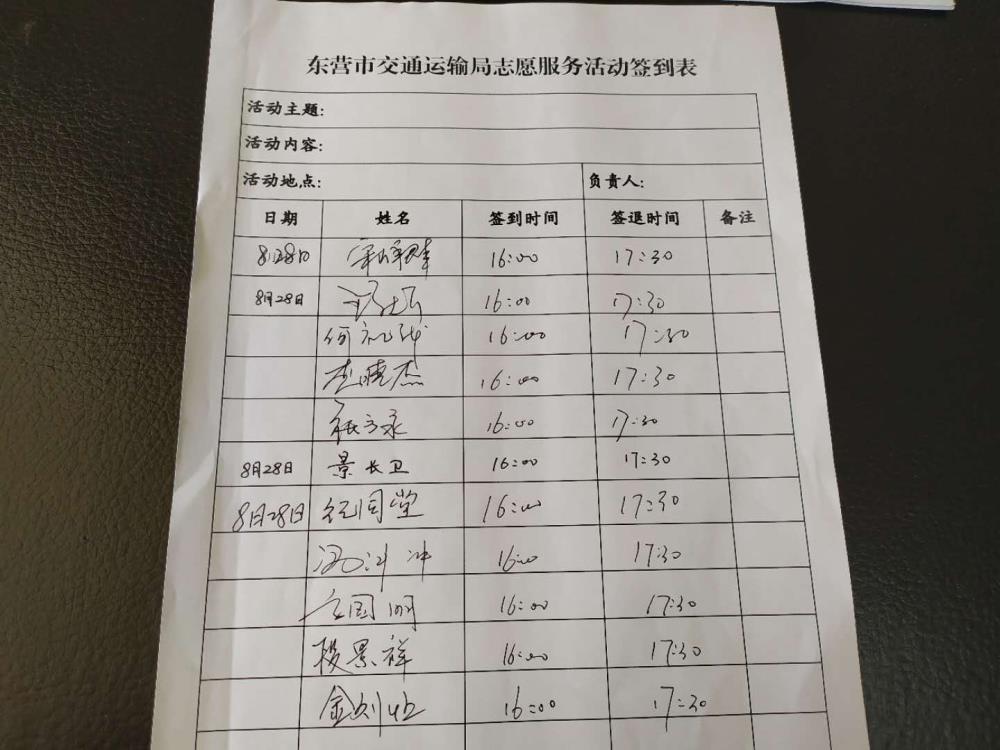 东营市交通运输局志愿服务活动签到表
活动主题:
活动内容:
活动地点: 负责人:
日期 姓名 签到时间 签退时间 备注
8月28日 16:00 17:30
8月28日 16:00 17:30
16:00 17:30
李晓杰 16:00 17:30
16:00 17:30
8月28日 景长卫 16:00 17:30
8月28日 16:00 17:30
16:00 17:30
国明 16:00 17:30
景祥 16:00 17:30
16:00 17:30